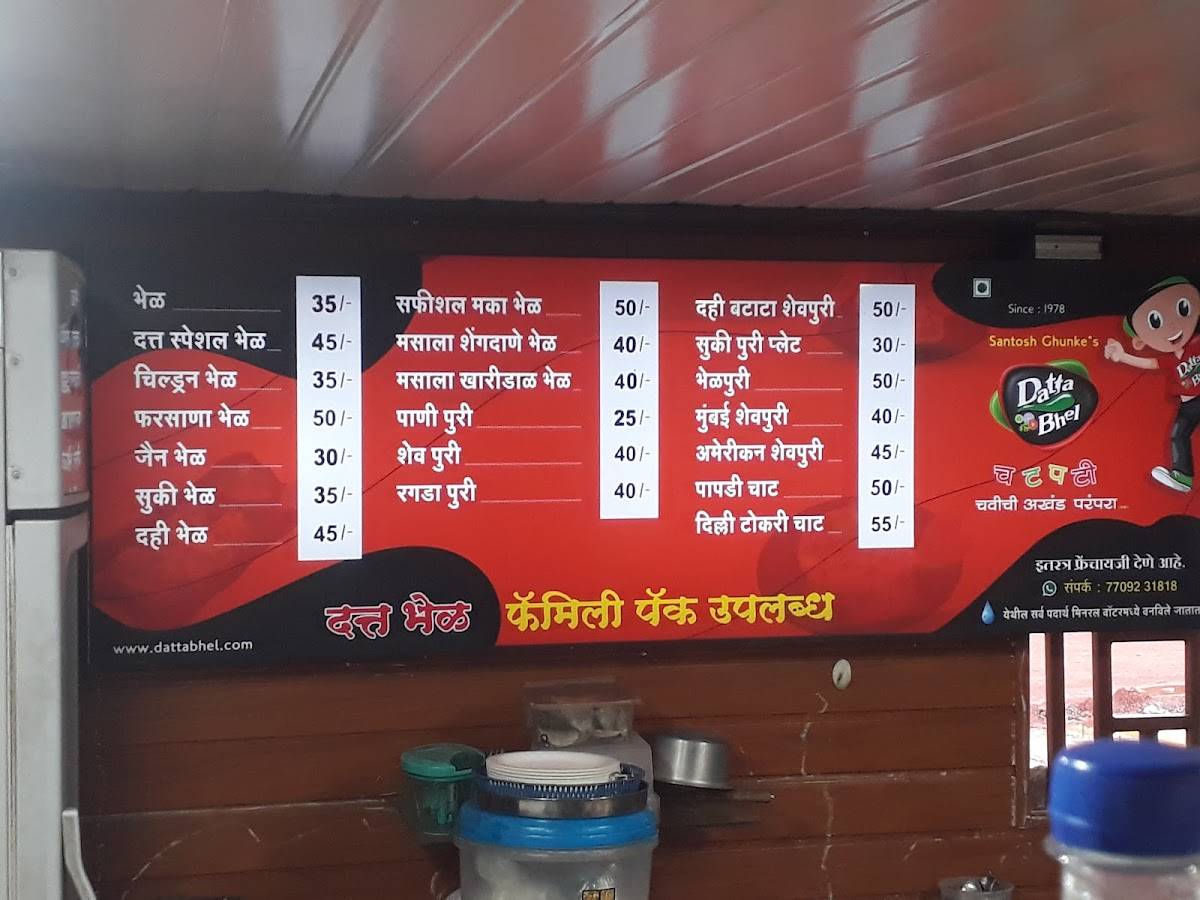 भेळ 35/-
दत्त स्पेशल भेळ 45/-
चिल्ड्रन भेळ 35/-
फरसाणा भेळ 50/-
जैन भेळ 30/-
सुकी भेळ 35/-
दही भेळ 45/-
सफीशल मका भेळ 50/-
मसाला शेंगदाणे भेळ 40/-
मसाला खारीडाळ भेळ 40/-
पाणी पुरी 25/-
शेव पुरी 40/-
रगडा पुरी 40/-
दही बटाटा शेवपुरी 50/-
सुकी पुरी प्लेट 30/-
भेळपुरी 50/-
मुंबई शेवपुरी 40/-
अमेरीकन शेवपुरी 45/-
पापडी चाट 50/-
दिल्ली टोकरी चाट 55/-
Since : 1978
Santosh Ghunke's
Datta
Bhel
चटपटी
चवीची अखंड परंपरा...
इतरत्र फ्रेंचायजी देणे आहे.
संपर्क : 77092 31818
येथील सर्व पदार्थ मिनरल वॉटरमध्ये बनविले जातात
दत्त भेळ फॅमिली पॅक उपलब्ध
www.dattabhel.com